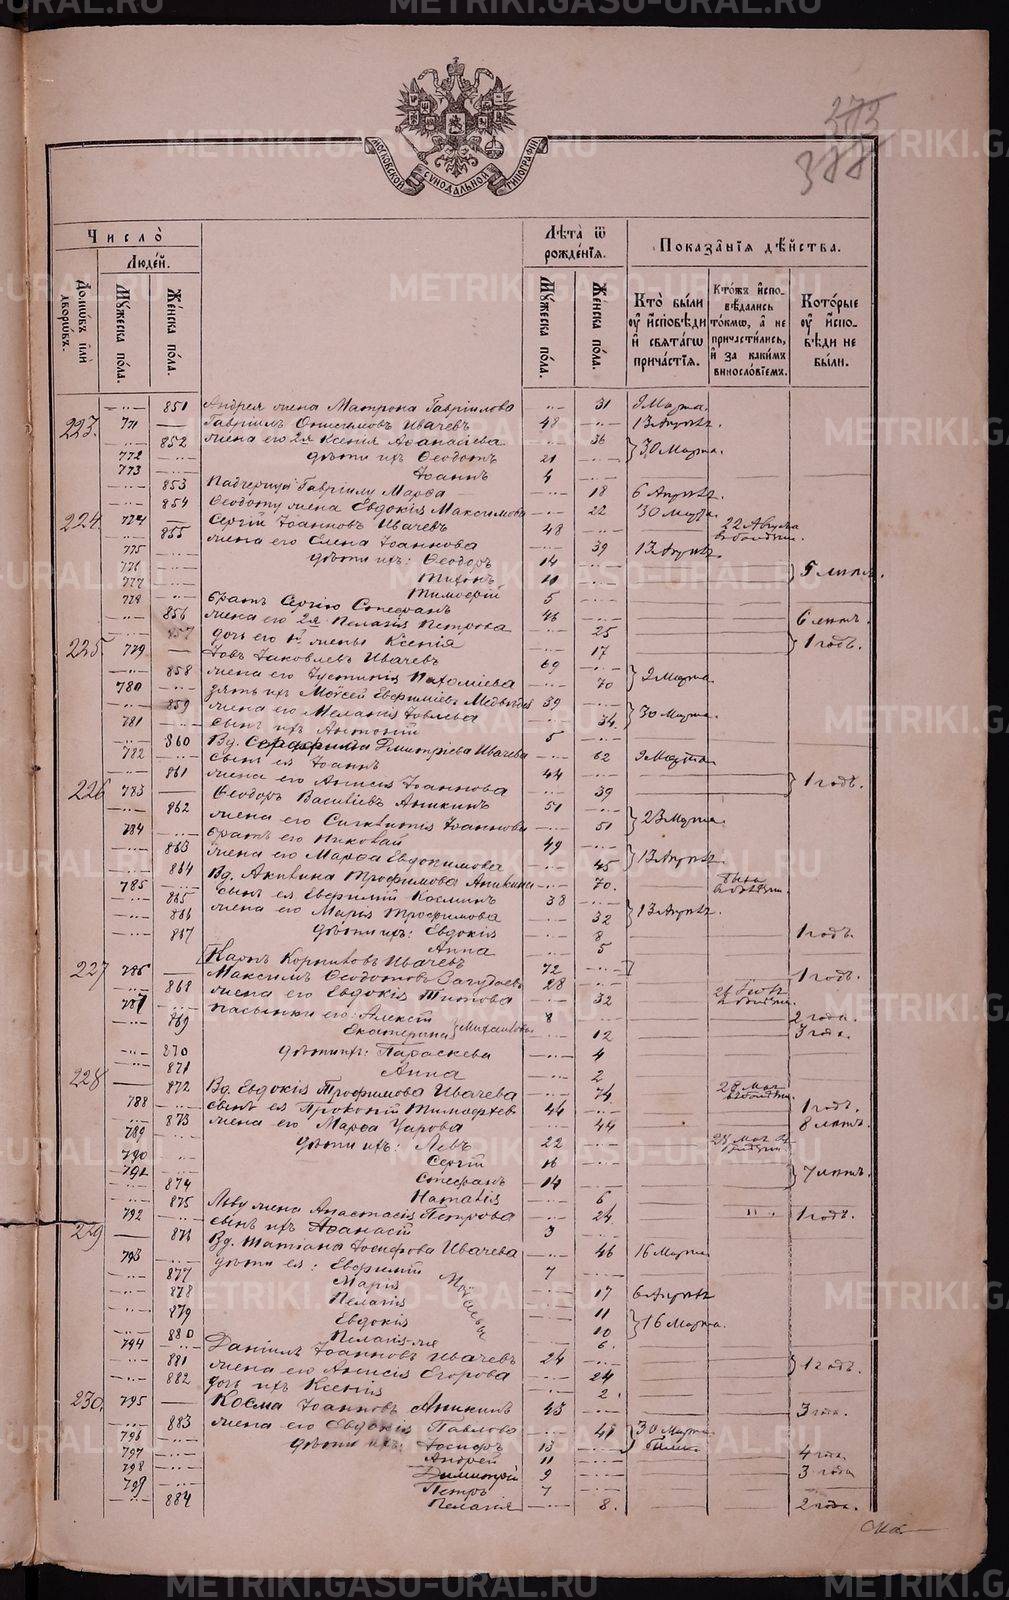 METRIKI.GASO-URAL.RU
373
388
МОСКОВСКОЙ СѴНОДАЛЬНОЙ ТИПОГРАФІИ
Число̀
Людей.
Домѡвъ или дворѡвъ.
Мꙋжеска пола.
Женска пола.
Лѣта ѿ рожденїѧ.
Мꙋжеска пола.
Женска пола.
Показанїѧ дѣйства.
Кто были оу исповѣди и свѧтагѡ причастїѧ.
Ктожъ исповѣдались токмѡ, а не причастились, и за какимъ винословїемъ.
Которые оу исповѣди не были.
851 Андрея жена Матрона Гавріилова 31 9 Марта.
223. 771 Гавріилъ Онисимовъ Ивачевъ 48
852 жена его 2я Ксенія Аѳанасіева 36 30 Марта.
772 дѣти ихъ Ѳеодотъ 21
773 Іоаннъ 4
853 Падчерица Гавріилу Марѳа 18
854 Ѳеодоту жена Евдокія Максимова 22 30 Марта.
224. 774 Сергій Іоанновъ Ивачевъ 48 22 Августа
855 жена его Елена Іоаннова 39
775 дѣти ихъ: Ѳеодоръ 14
776 Тихонъ 10 5 лѣтъ.
777 Тимоѳей 5
778 братъ Сергію Стефанъ 46 6 лѣтъ.
856 жена его 2я Пелагія Петрова 25
857 дочь его 1й жены Ксенія 17 1 годъ.
225. 779 Іовъ Іаковлевъ Ивачевъ 69
858 жена его Іустинія Пахоміева 70 9 Марта
780 зять ихъ Моѵсей Евфиміевъ Медвѣдевъ 39
859 жена его Меланія Іовлева 34. 30 Марта.
781 сынъ ихъ Антоній 5
860 Вд. Серафима Димитріева Ивачева 62 9 Марта
782 сынъ ея Іоаннъ 44
861 жена его Анисія Іоаннова 39 1 годъ.
226 783 Ѳеодоръ Васильевъ Аникинъ 51
862 жена его Синклитикія Іоаннова 51 23 Марта.
784 братъ его Николай 49
863 жена его Марѳа Евдокимова 45
864 Вд. Акилина Трофимова Аникина 70.
785 сынъ ея Евфимій Косминъ 38
865 жена его Марія Трофимова 32
866 дѣти ихъ: Евдокія 8 1 годъ.
867 Анна 5
Карпъ Корниловъ Ивачевъ 72
227 786 Максимъ Ѳеодотовъ 28 1 годъ.
868 жена его Евдокія Титова 32
787 пасынки его: Алексѣй 8 2 года.
869 Екатерина Михаиловы 12 3 года.
870 дѣти ихъ: Параскева 4
871 Анна 2
228 872 Вд. Евдокія Трофимова Ивачева 74 28 Мая
788 сынъ ея Прокопій Тимоѳеевъ 44 1 годъ.
873 жена его Марѳа Уарова 44 8 лѣтъ.
789 дѣти ихъ: Левъ 22 28 Мая
790 Сергій 16
791 Стефанъ 14 7 лѣтъ.
874 Наталія 6
875 Льву жена Анастасія Петрова 24 1 годъ.
792 сынъ ихъ Аѳанасій 3
229 876 Вд. Татіана Іосифова Ивачева 46 16 Марта
793 дѣти ея: Евфимій 7
877 Марія 17
878 Пелагія 11
879 Евдокія 10 16 Марта.
880 Пелагія-мя 6.
794 Даніилъ Іоанновъ Ивачевъ 24
881 жена его Анисія Егорова 24 1 годъ.
882 дочь ихъ Ксенія 2.
230. 795 Косма Іоанновъ Аникинъ 43 3 года.
883 жена его Евдокія Павлова 41 30 Марта
796 дѣти ихъ: Іосифъ 13 были
797 Андрей 11 4 года.
798 Димитрій 9 3 года
799 Петръ 7
884 Пелагія 8. 2 года.